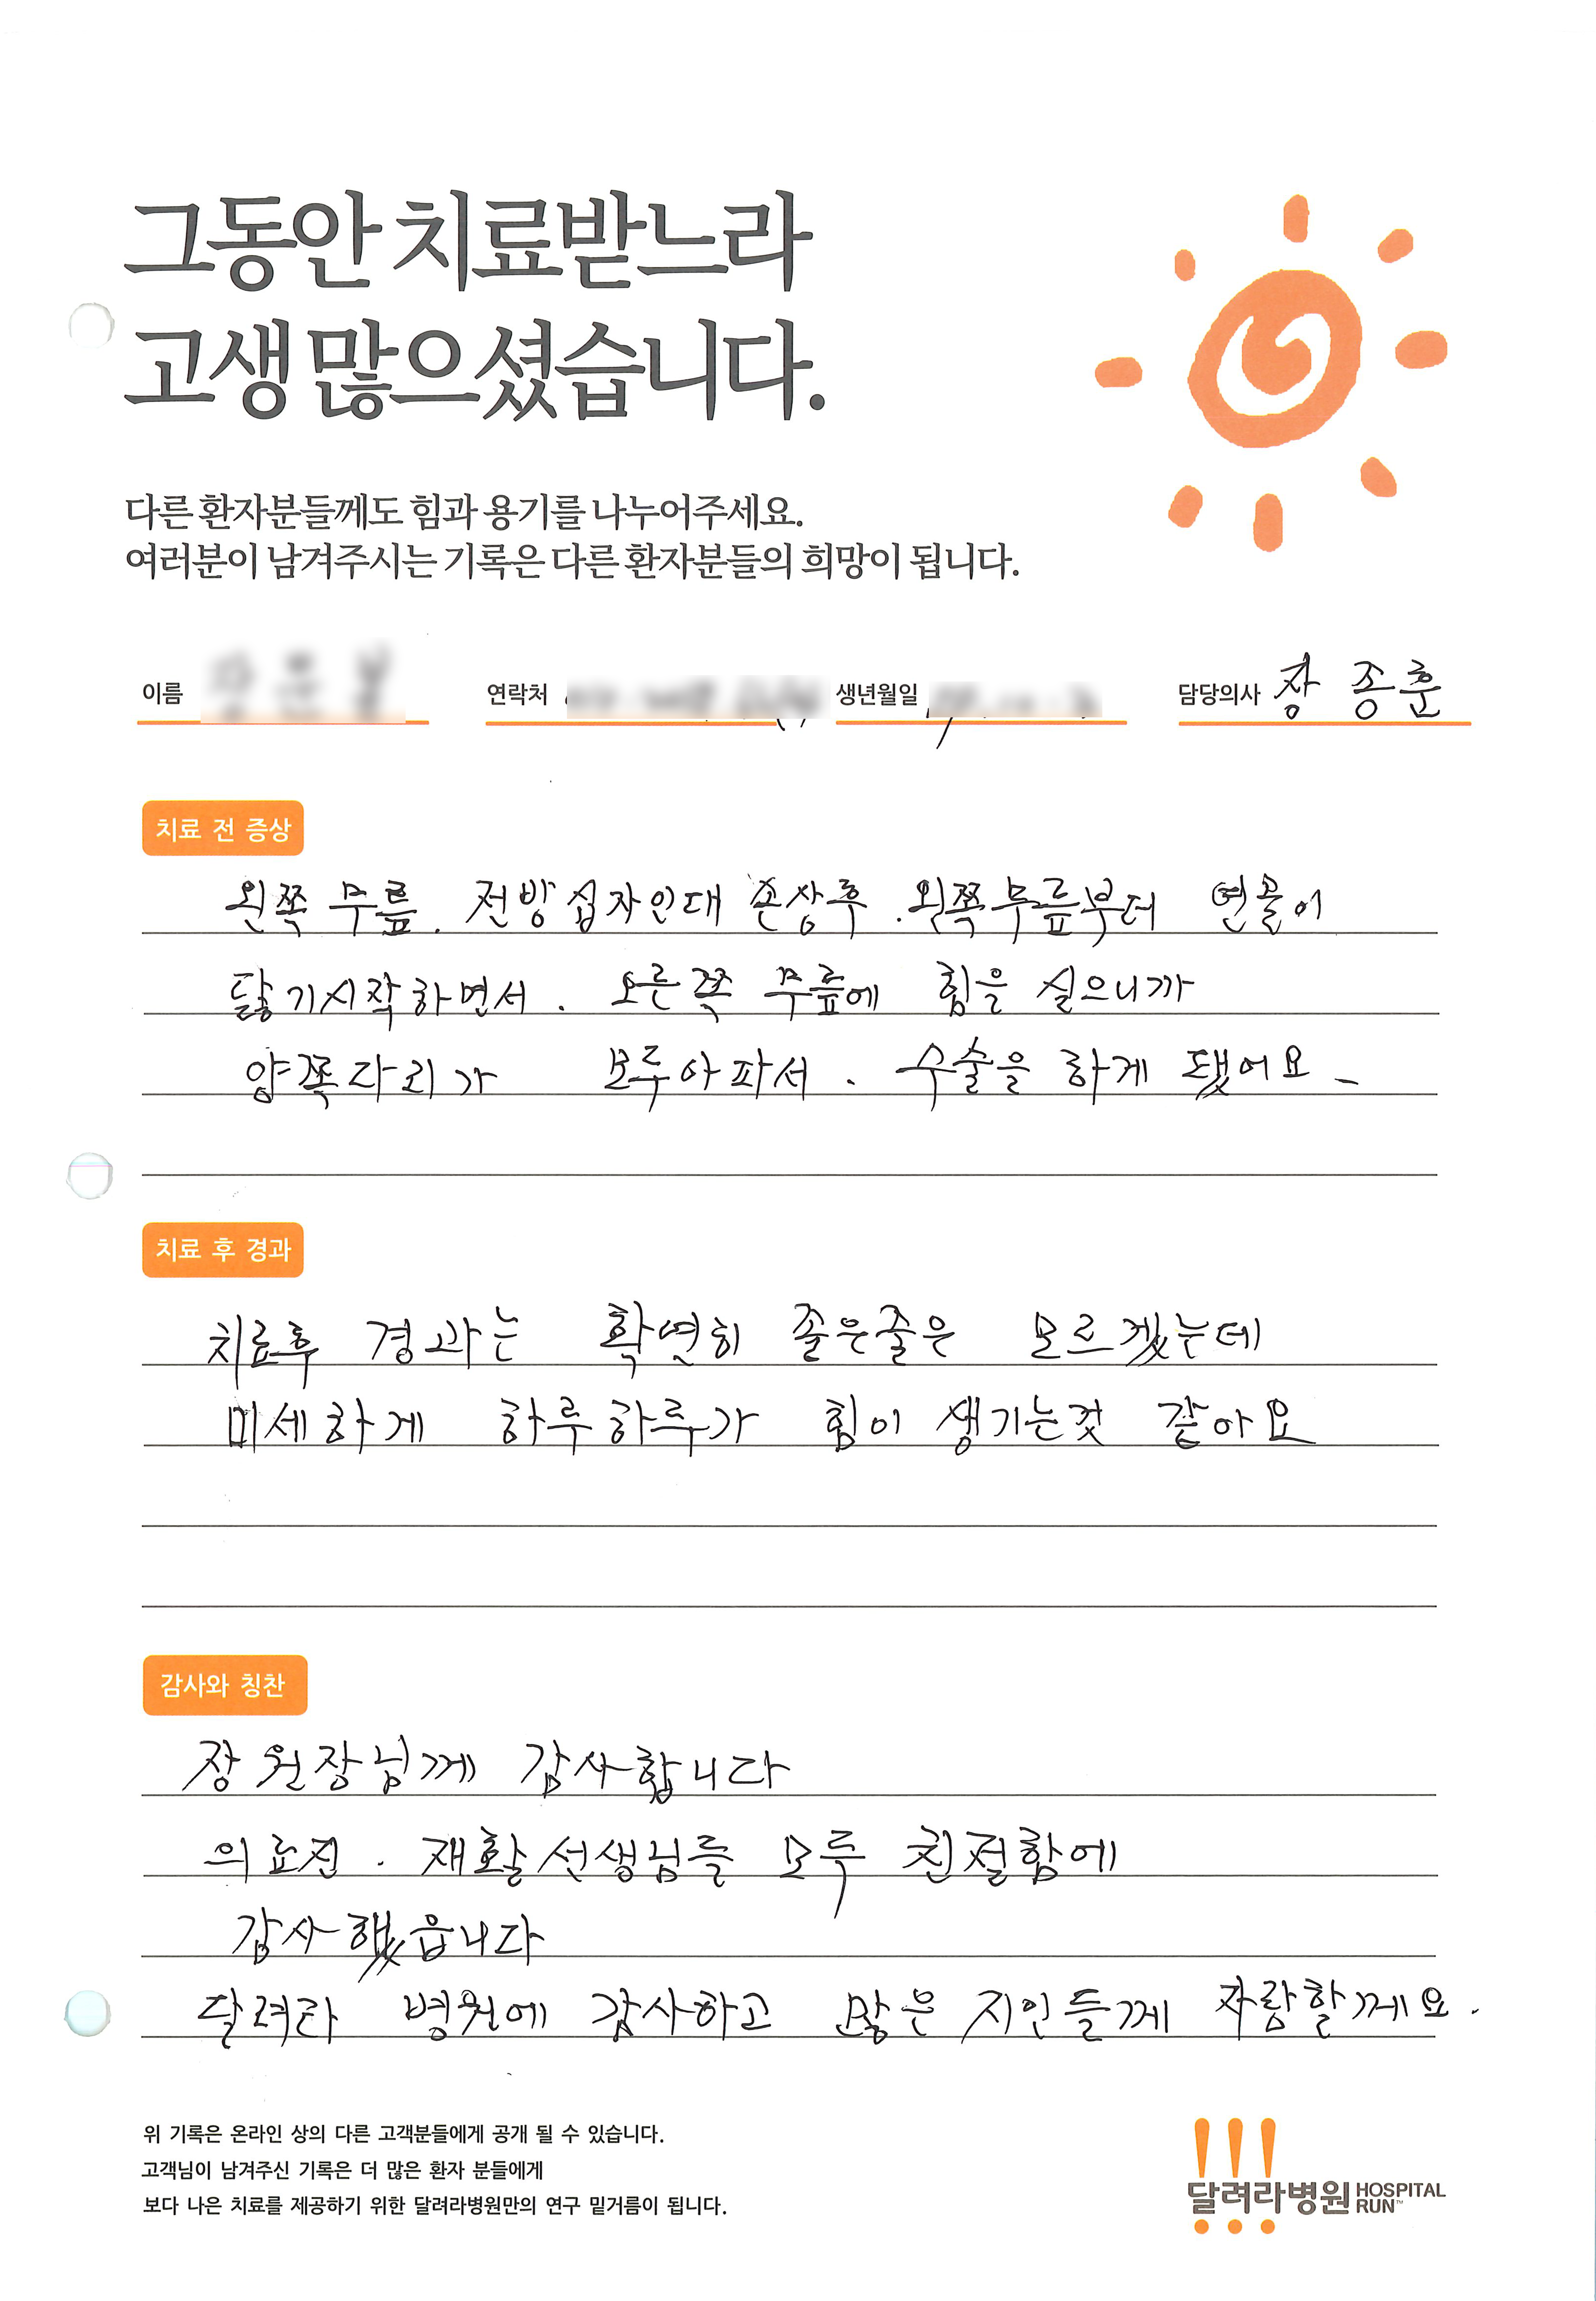 그동안 치료받느라
고생 많으셨습니다.
다른 환자분들께도 힘과 용기를 나누어주세요.
여러분이 남겨주시는 기록은 다른 환자분들의 희망이 됩니다.
이름 연락처 생년월일 담당의사 장종훈
치료 전 증상
왼쪽 무릎. 전방십자인대 손상후. 왼쪽무릎부터 연골이
닳기시작하면서. 오른쪽 무릎에 힘을 실으니까
양쪽다리가 모두아파서. 수술을 하게 됐어요
치료 후 경과
치료후 경과는 확연히 좋은줄은 모르겠는데
미세하게 하루하루가 힘이 생기는것 같아요
감사와 칭찬
장원장님께 감사합니다
의료진. 재활선생님들 모두 친절함에
감사했읍니다
달려라 병원에 감사하고 많은 지인들께 자랑할께요.
위 기록은 온라인 상의 다른 고객분들에게 공개 될 수 있습니다.
고객님이 남겨주신 기록은 더 많은 환자 분들에게
보다 나은 치료를 제공하기 위한 달려라병원만의 연구 밑거름이 됩니다.
달려라병원 HOSPITAL RUN™